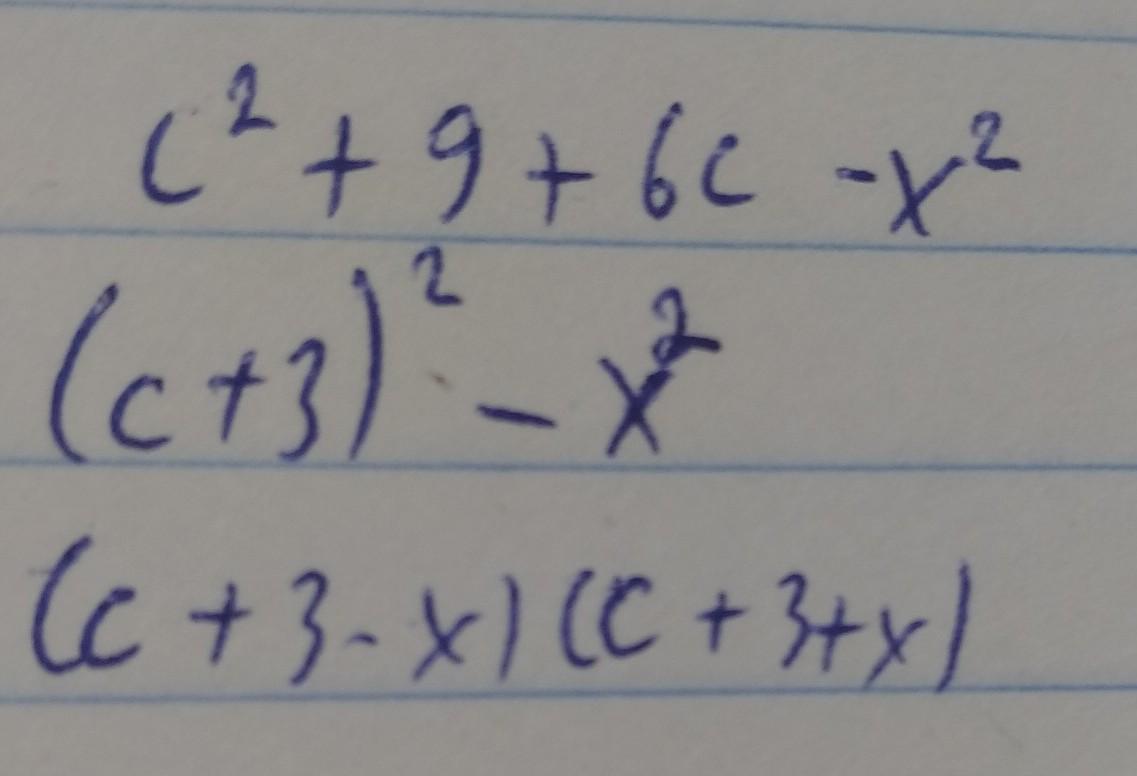 c² + 9 + 6c - x²
(c + 3)² - x²
(c + 3 - x) (c + 3 + x)